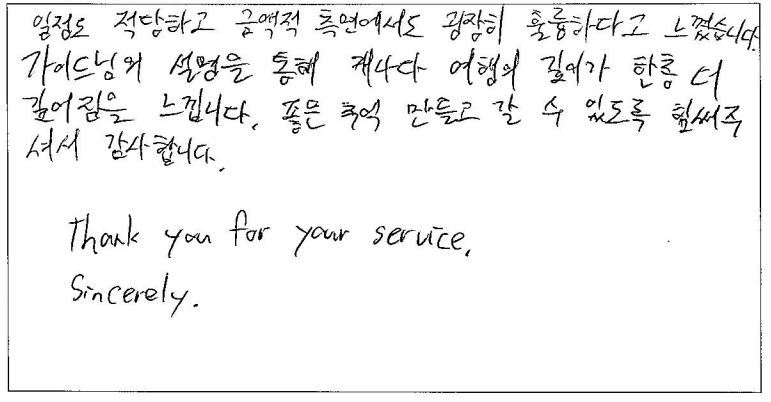 일정도 적당하고 금액적 측면에서도 굉장히 훌륭하다고 느꼈습니다.
가이드님의 설명을 통해 캐나다 여행의 깊이가 한층 더
깊어짐을 느낍니다. 좋은 추억 만들고 갈 수 있도록 힘써주
셔서 감사합니다.
Thank you for your service.
Sincerely.